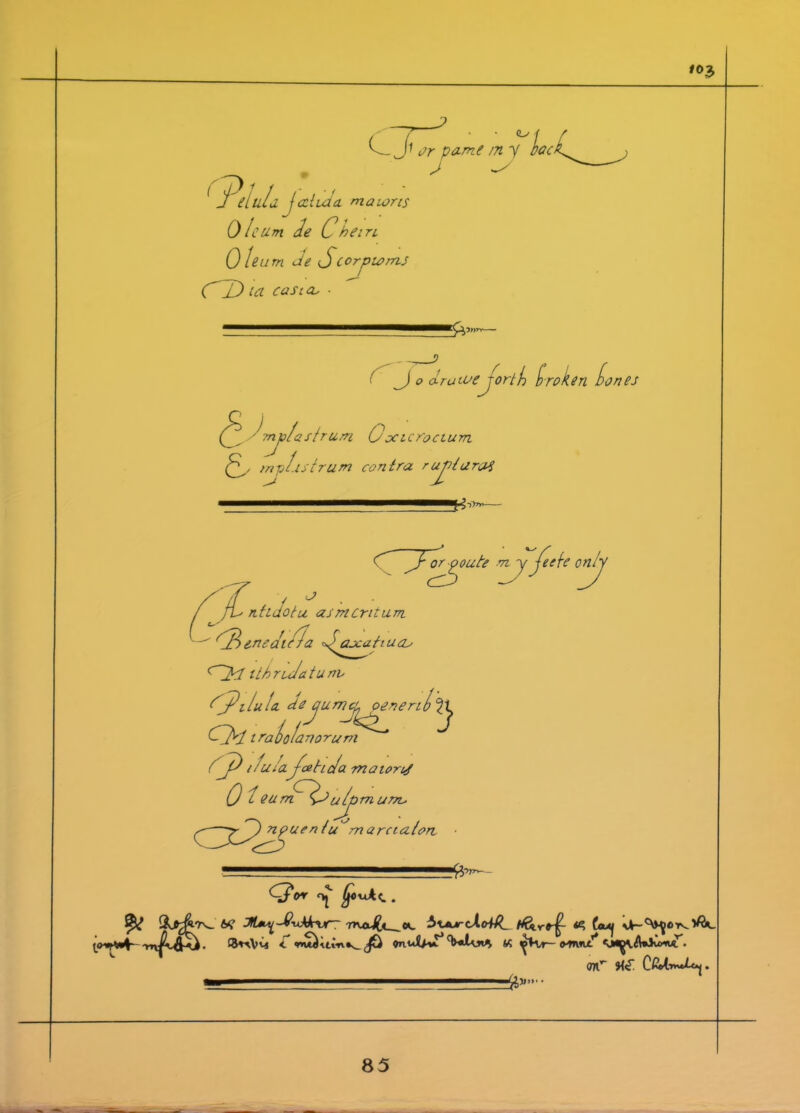 103
For pame in yͤ back
Pelula fætida maioris
Oleum de Cheiri
Oleum de Scorpionis
Dia casia
To drawe forth broken bones
Emplastrum Oxicrocium
Emplastrum contra rupturas
For goute in yͤ feete only
Antidotu asincritum
Benedicta Laxatiua
Mithridatum
Pilula de gume generib⁹
Mirabolanorum
Pilula fœtida maioris
Oleum Vulpinum
Unguentu marcialon
For yͤ goute.
May-butter make a
& Lay it
85